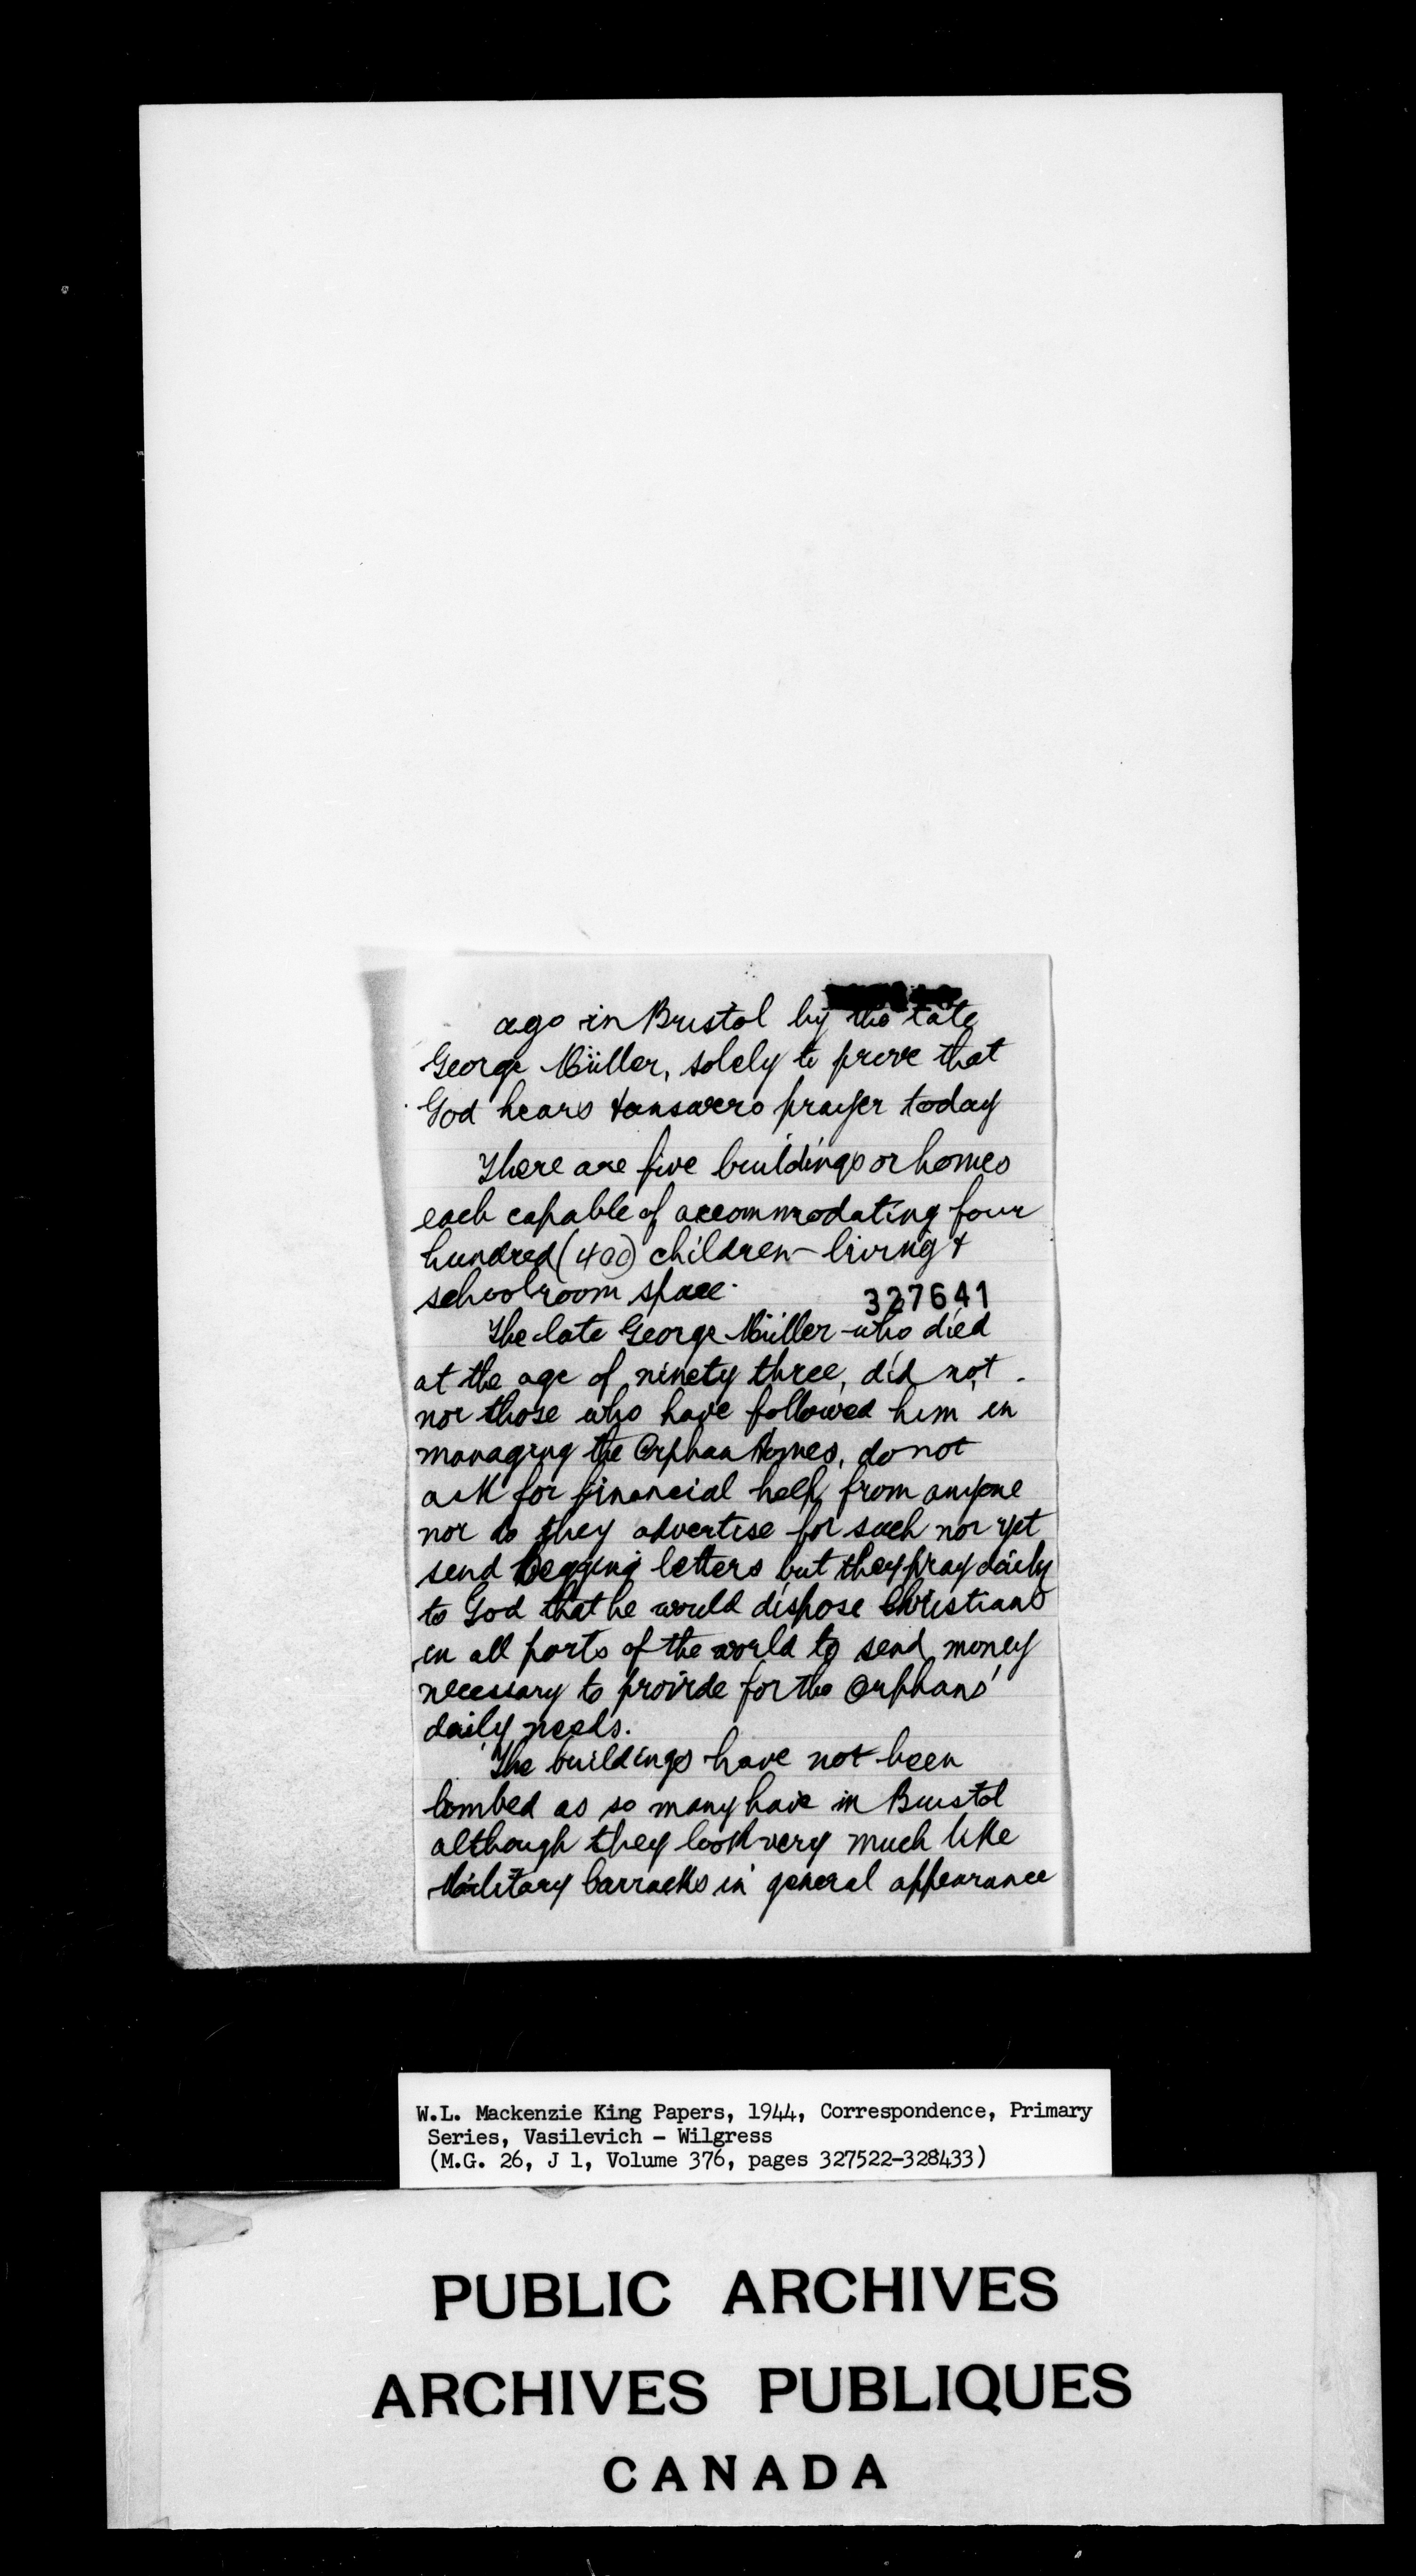 ago in Bristol by the late
George Müller, solely to prove that
God hears & answers prayer today
There are five buildings or homes
each capable of accommodating four
hundred (400) children - living &
schoolroom space.
327641
The late George Müller - who died
at the age of ninety three, did not -
nor those who have followed him in
managing the Orphan Homes, do not
ask for financial help from anyone
nor do they advertise for such nor yet
send begging letters but they pray daily
to God that he would dispose Christians
in all parts of the world to send money
necessary to provide for the Orphans'
daily needs.
The buildings have not been
bombed as so many have in Bristol
although they look very much like
Military barracks in general appearance
W.L. Mackenzie King Papers, 1944, Correspondence, Primary
Series, Vasilevich - Wilgress
(M.G. 26, J 1, Volume 376, pages 327522-328433)
PUBLIC ARCHIVES
ARCHIVES PUBLIQUES
CANADA